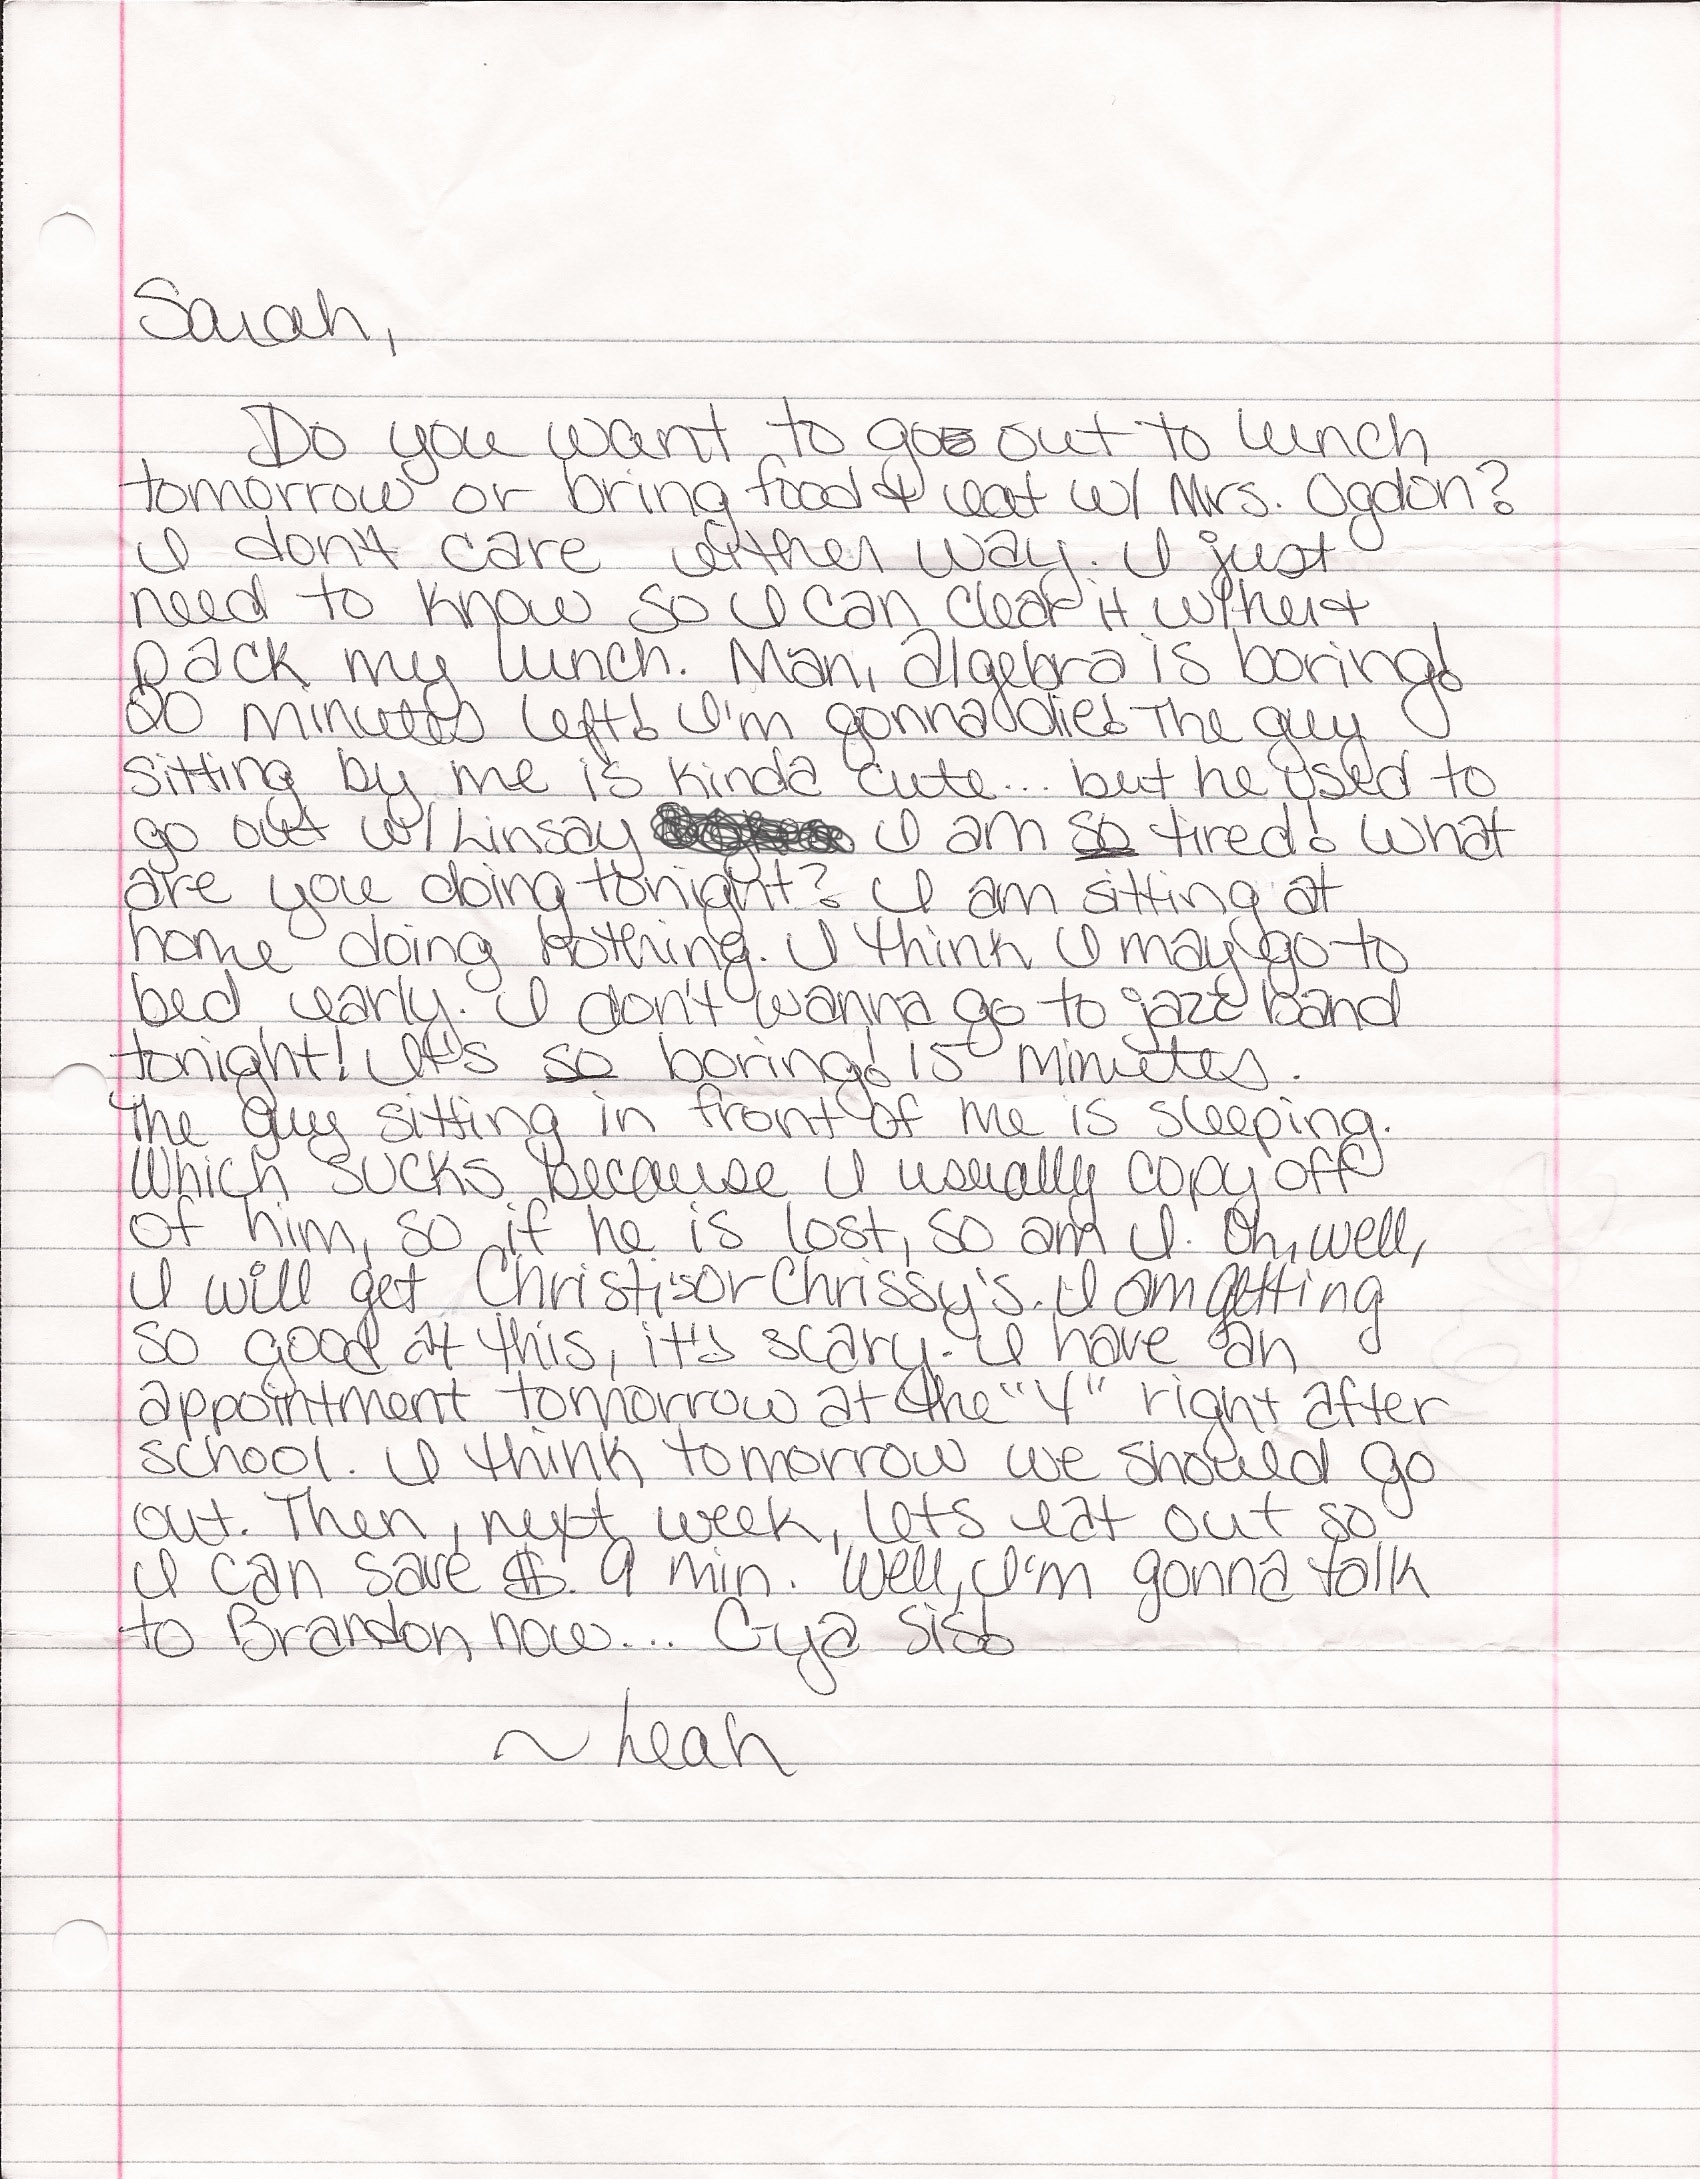 Sarah,
Do you want to go out to lunch
tomorrow or bring food & eat w/ Mrs. Ogdon?
I don't care either way. I just
need to know so I can clear it w/her &
pack my lunch. Man, algebra is boring!
20 minutes left! I'm gonna die! The guy
sitting by me is kinda cute... but he used to
go out w/ Linsay I am so tired! What
are you doing tonight? I am sitting at
home doing nothing. I think I may go to
bed early. I don't wanna go to jazz band
tonight! It's so boring! 15 minutes.
The guy sitting in front of me is sleeping.
Which sucks because I usually copy off
of him, so if he is lost, so am I. Oh, well,
I will get Christi's or Chrissy's. I am getting
so good at this, it's scary. I have an
appointment tomorrow at the "Y" right after
school. I think tomorrow we should go
out. Then, next week, lets eat out so
I can save $. 9 min. Well, I'm gonna talk
to Brandon now... Cya sis!
~ Leah